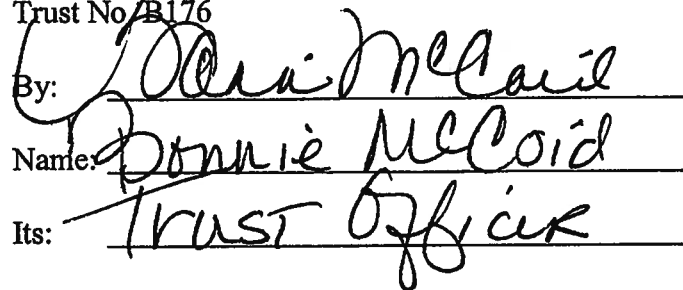 Trust No. B176
By: Donnie McCoid
Name: Donnie McCoid
Its: Trust Officer